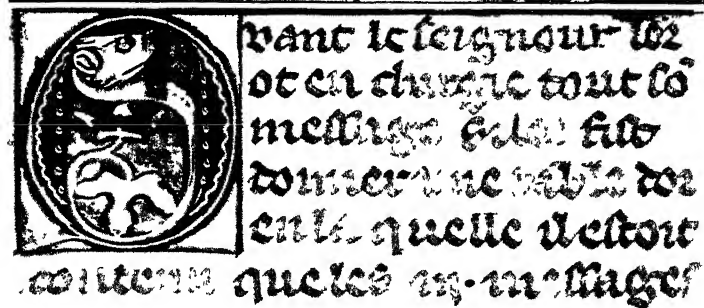 Qvant le seignour lor
ot en chargie tout sō
message fist
donner une table dor
en la quelle il estoit
contenu que les messages